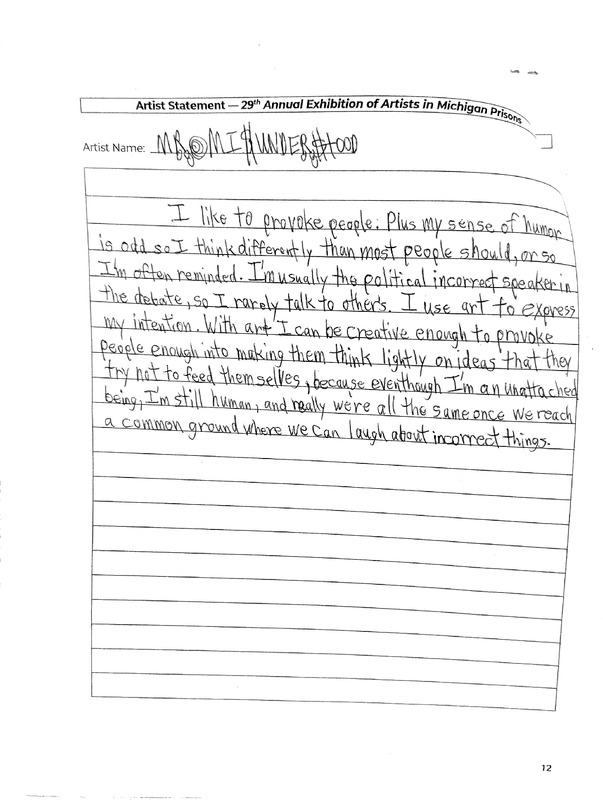 Artist Statement — 29th Annual Exhibition of Artists in Michigan Prisons
Artist Name: MR. MI$UNDER$TOOD
I like to provoke people. Plus my sense of humor
is odd so I think differently than most people should, or so
I'm often reminded. I'm usually the political incorrect speaker in
the debate, so I rarely talk to others. I use art to express
my intention. With art I can be creative enough to provoke
people enough into making them think lightly on ideas that they
try not to feed themselves, because eventhough I'm an unattached
being, I'm still human, and really we're all the same once we reach
a common ground where we can laugh about incorrect things.
12